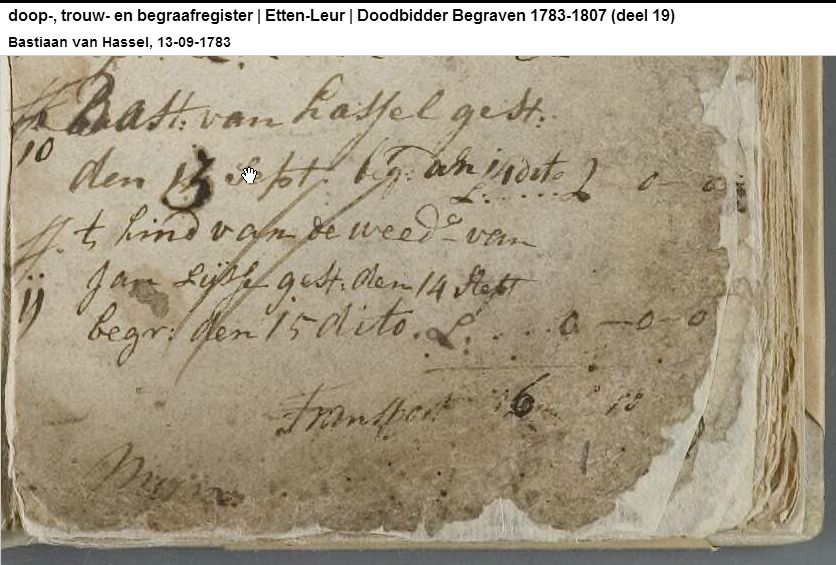 doop-, trouw- en begraafregister | Etten-Leur | Doodbidder Begraven 1783-1807 (deel 19)
Bastiaan van Hassel, 13-09-1783
Bast: van hassel gest:
10
den 13 Sept: beg: den 14 dito £ 0 - 0
t kind van de weede van
11
Jan gest: den 14 Sept
begr: den 15 dito. £ . . . 0 - 0 - 0
Transport 16